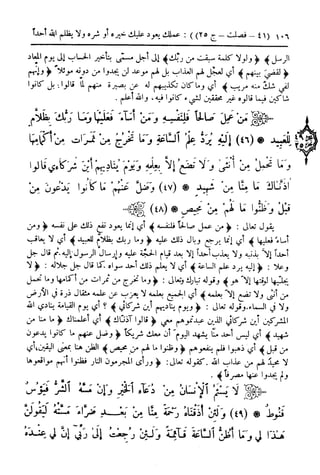 ١٠٦ (٤١ – فصلت – ج ٢٥) : عملك يعود عليك خيره أو شره ولا يظلم الله أحداً
الرسل ﴿ ولولا كلمة سبقت من ربك ﴾ إلى أجل مسمى بتأخير الحساب إلى يوم المعاد
لقضي بينهم ﴾ أي لعجل لهم العذاب بل لهم موعد لن يجدوا من دونه موئلا ﴿ وإنهم
لفي شك منه مريب ﴾ أي وما كان تكذيبهم له عن بصيرة منهم لما قالوا : بل كانوا
شاكين فيما قالوه غير محققين لشيء كانوا فيه . والله أعلم .
مَنْ عَمِلَ صَالِحًا فَلِنَفْسِهِ وَمَنْ أَسَاءَ فَعَلَيْهَا وَمَا رَبُّكَ بِظَلَّامٍ
لِلْعَبِيدِ (٤٦) إِلَيْهِ يُرَدُّ عِلْمُ السَّاعَةِ وَمَا تَخْرُجُ مِنْ ثَمَرَاتٍ مِنْ أَكْمَامِهَا
وَمَا تَحْمِلُ مِنْ أُنْثَى وَلَا تَضَعُ إِلَّا بِعِلْمِهِ وَيَوْمَ يُنَادِيهِمْ أَيْنَ شُرَكَائِي قَالُوا
آذَنَّاكَ مَا مِنَّا مِنْ شَهِيدٍ (٤٧) وَضَلَّ عَنْهُمْ مَا كَانُوا يَدْعُونَ مِنْ
قَبْلُ وَظَنُّوا مَا لَهُمْ مِنْ مَحِيصٍ (٤٨)
يقول تعالى : ﴿ من عمل صالحاً فلنفسه ﴾ أي إنما يعود نفع ذلك على نفسه ﴿ ومن
أساء فعليها ﴾ أي إنما يرجع وبال ذلك عليه ﴿ وما ربك بظلام للعبيد ﴾ أي لا يعاقب
أحداً إلا بذنبه ولا يعذب أحداً إلا بعد قيام الحجة عليه وإرسال الرسول إليه . ثم قال جل
وعلا : ﴿ إليه يرد علم الساعة ﴾ أي لا يعلم ذلك أحد سواه كما قال جل جلاله : ﴿ لا
يجليها لوقتها إلا هو ﴾ وقوله تبارك وتعالى : ﴿ وما تخرج من ثمرات من أكمامها وما تحمل
من أنثى ولا تضع إلا بعلمه ﴾ أي الجميع بعلمه لا يعزب عن علمه مثقال ذرة في الأرض
ولا في السماء . وقوله تعالى : ﴿ ويوم يناديهم أين شركائي ﴾ أي يوم القيامة ينادي الله
المشركين أين شركائي الذين عبدتموهم معي ﴿ قالوا آذناك ﴾ أي أعلمناك ﴿ ما منا من
شهيد ﴾ أي ليس أحد منا يشهد اليوم أن معك شريكاً ﴿ وضل عنهم ما كانوا يدعون
من قبل ﴾ أي ذهبوا فلم ينفعوهم ﴿ وظنوا ما لهم من محيص ﴾ الظن هنا بمعنى اليقين، أي
لا محيد لهم من عذاب الله . كقوله تعالى : ﴿ ورأى المجرمون النار فظنوا أنهم مواقعوها
ولم يجدوا عنها مصرفاً ﴾ .
لَا يَسْئَمُ الْإِنْسَانُ مِنْ دُعَاءِ الْخَيْرِ وَإِنْ مَسَّهُ الشَّرُّ فَيَئُوسٌ
قَنُوطٌ (٤٩) وَلَئِنْ أَذَقْنَاهُ رَحْمَةً مِنَّا مِنْ بَعْدِ ضَرَّاءَ مَسَّتْهُ لَيَقُولَنَّ
هَذَا لِي وَمَا أَظُنُّ السَّاعَةَ قَائِمَةً وَلَئِنْ رُجِعْتُ إِلَى رَبِّي إِنَّ لِي عِنْدَهُ